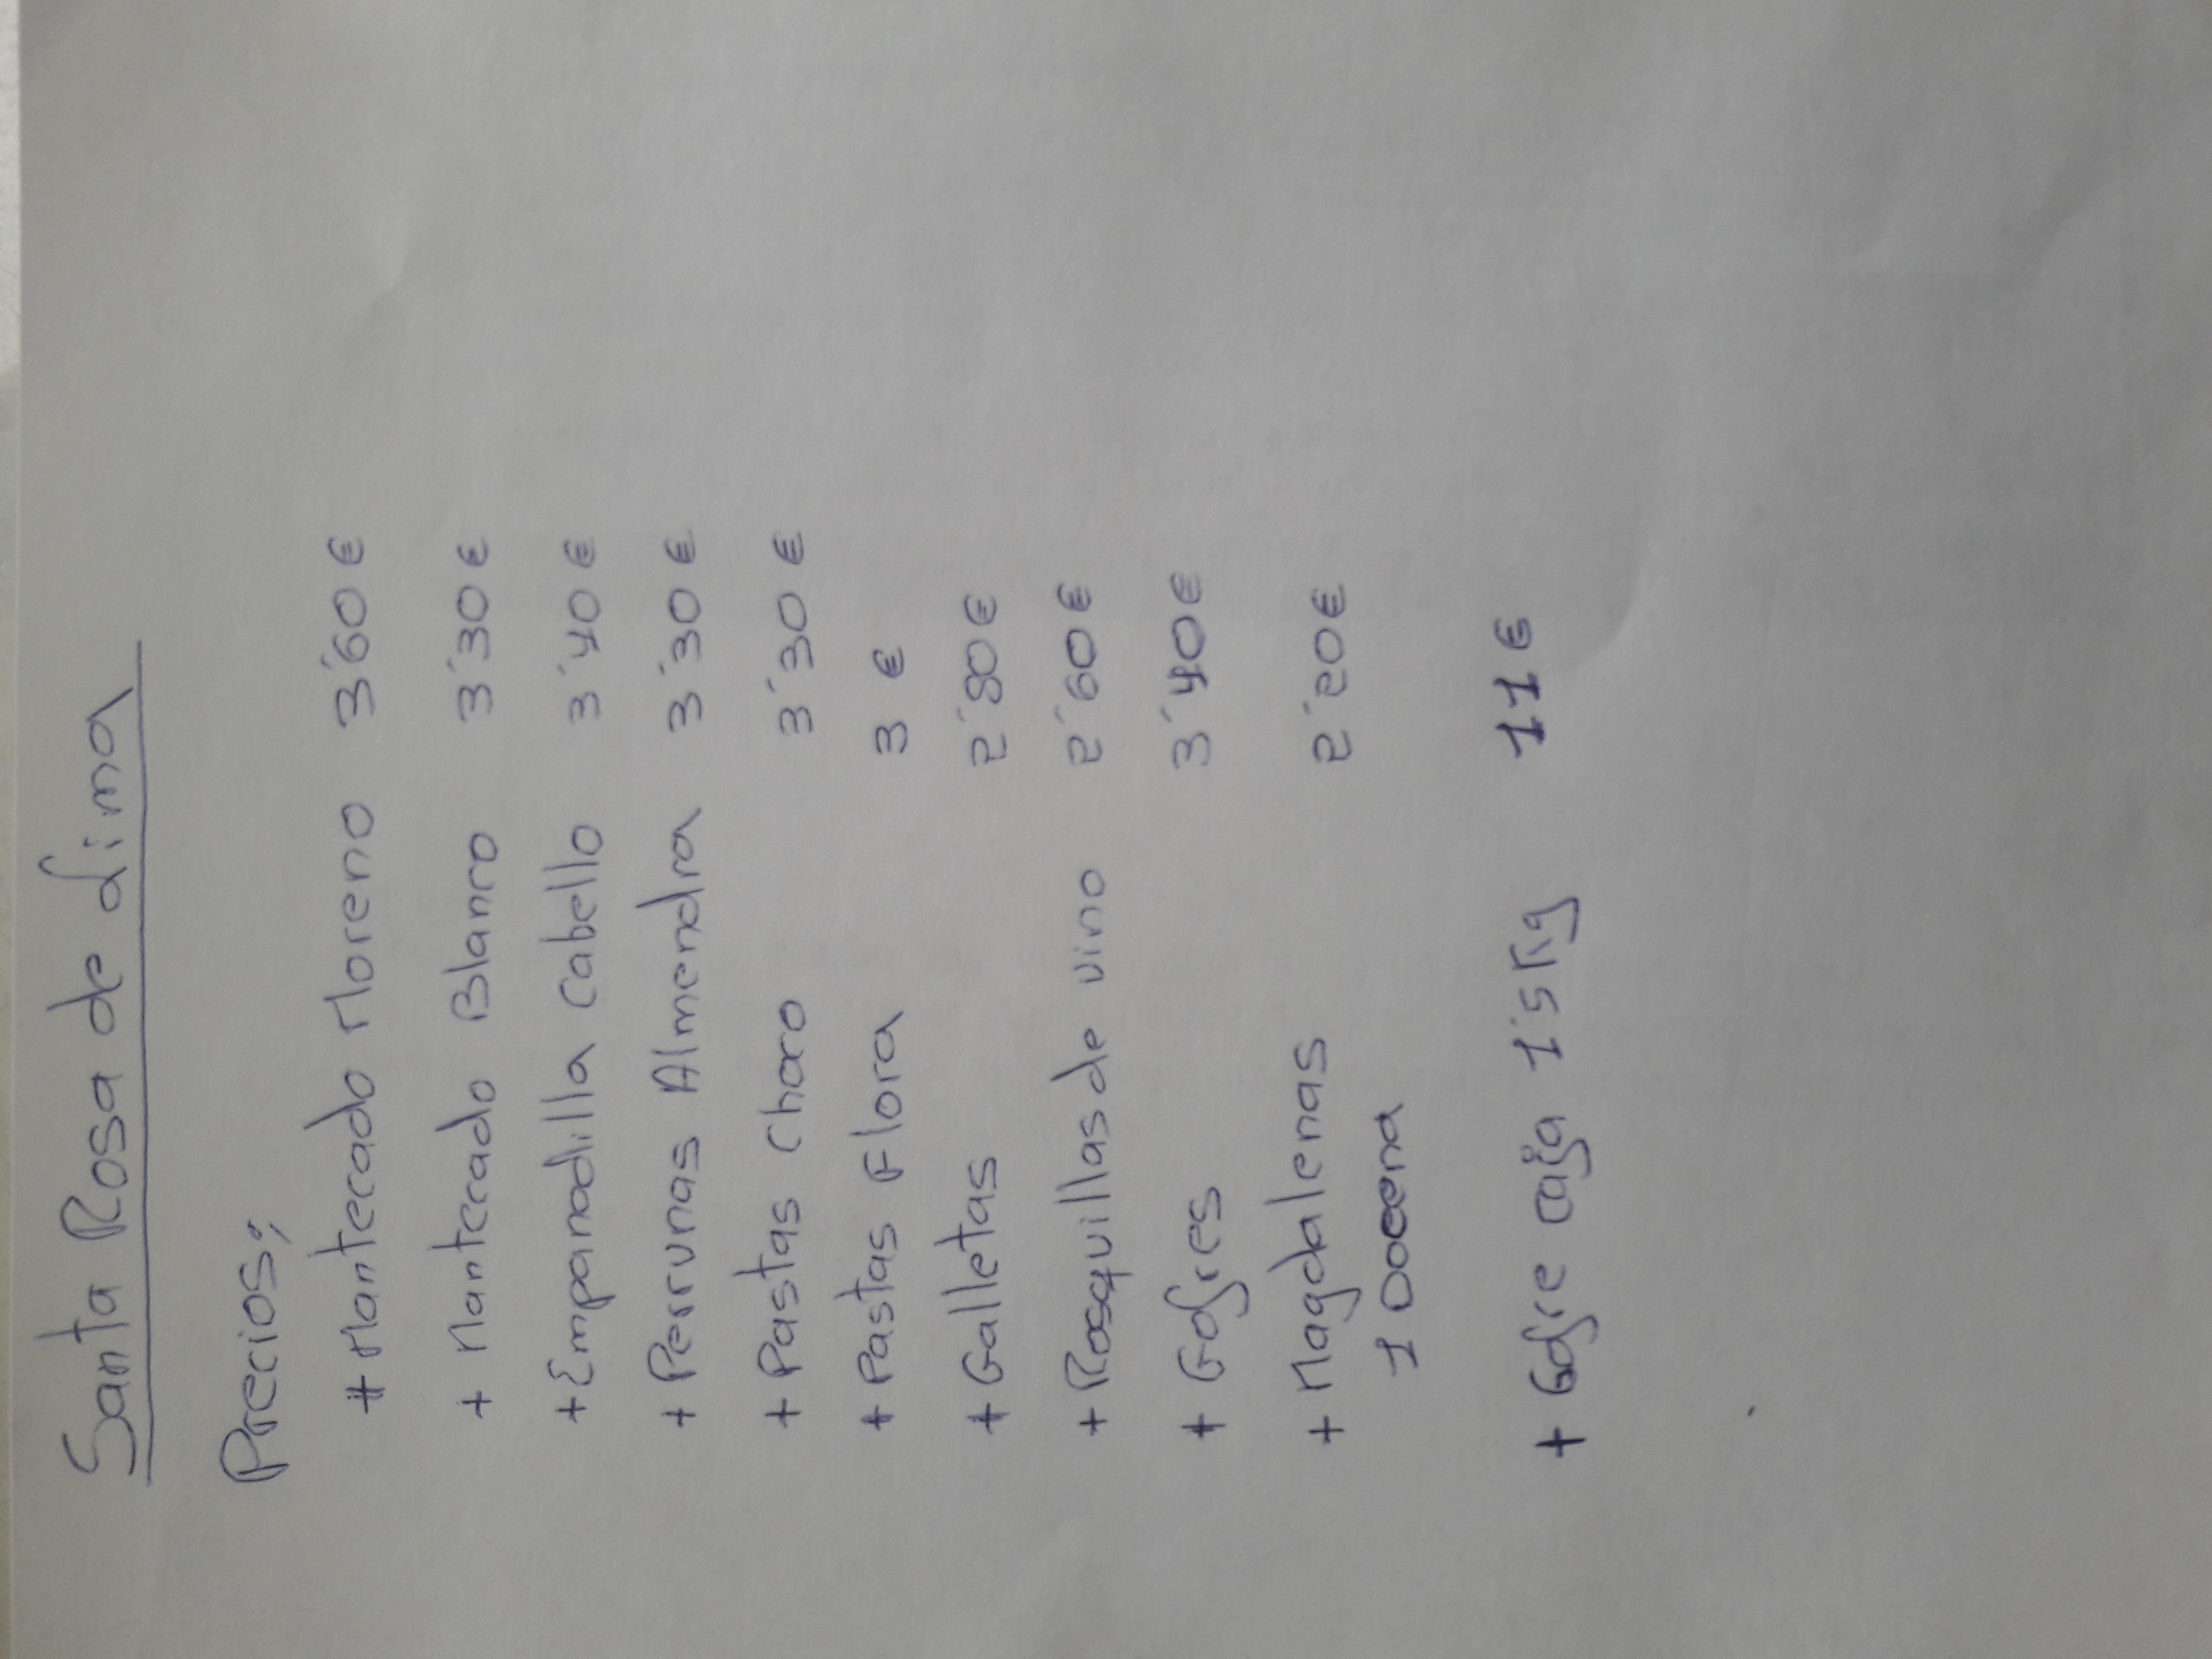 Santa Rosa de Lima
Precios;
+ Mantecado Moreno 3'60€
+ Mantecado Blanco 3'30€
+ Empanadilla Cabello 3'40€
+ Perrunas Almendra 3'30€
+ Pastas Choco 3'30€
+ Pastas Flora 3€
+ Galletas 2'80€
+ Rosquillas de vino 2'60€
+ Gofres 3'40€
+ Magdalenas 2'20€
1 Docena
+ Gofre caja 1'5 Kg 11€